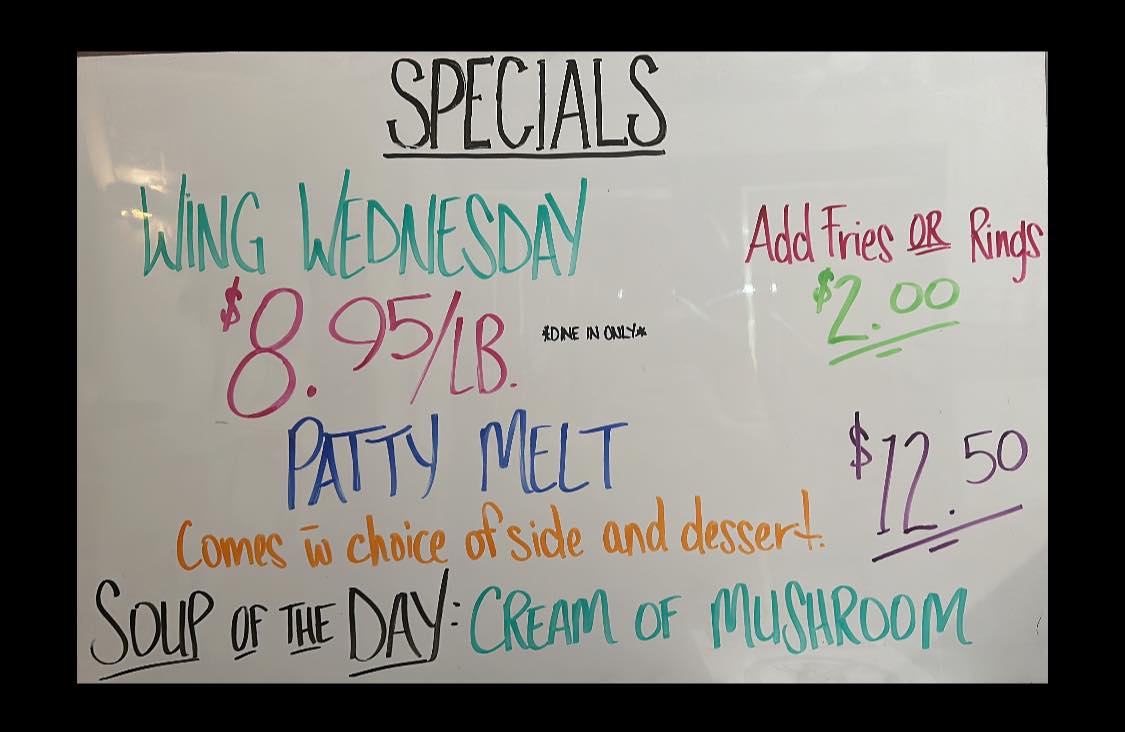 SPECIALS
WING WEDNESDAY
$8.95/LB. *DINE IN ONLY*
Add Fries OR Rings
$2.00
PATTY MELT
$12.50
Comes w̄ choice of side and dessert.
SOUP OF THE DAY: CREAM OF MUSHROOM